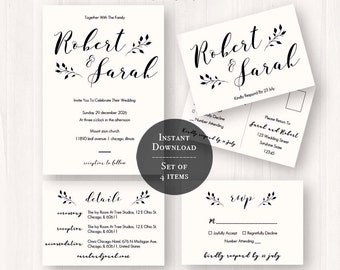 Together With The Family
Robert
&
Sarah
Invite You To Celebrate Their Wedding
Sunday 29 december 2026
At three o'clock in the afternoon
Mount zion church
11890 leaf avenue | chicago, Illinois
reception to follow
Robert
& Sarah
Kindly Respond By 23 July
Kindly Declines
Number Attending
kindly respond by 1 july
Please Return To
Sarah and Robert
123 Wedding Street
Sunshine State
12345
INSTANT
DOWNLOAD
SET OF
4 ITEMS
details
ceremony
The Ivy Room At Tree Studios, 12 E Ohio St,
Chicago, IL 60611
reception
The Ivy Room At Tree Studios, 12 E Ohio St,
Chicago, IL 60611
accomodation
Omni Chicago Hotel, 676 N Michigan Ave,
Chicago, IL 60611
rsvp
M
Joyfully Accept
Regretfully Decline
Number Attending
kindly respond by 1 july